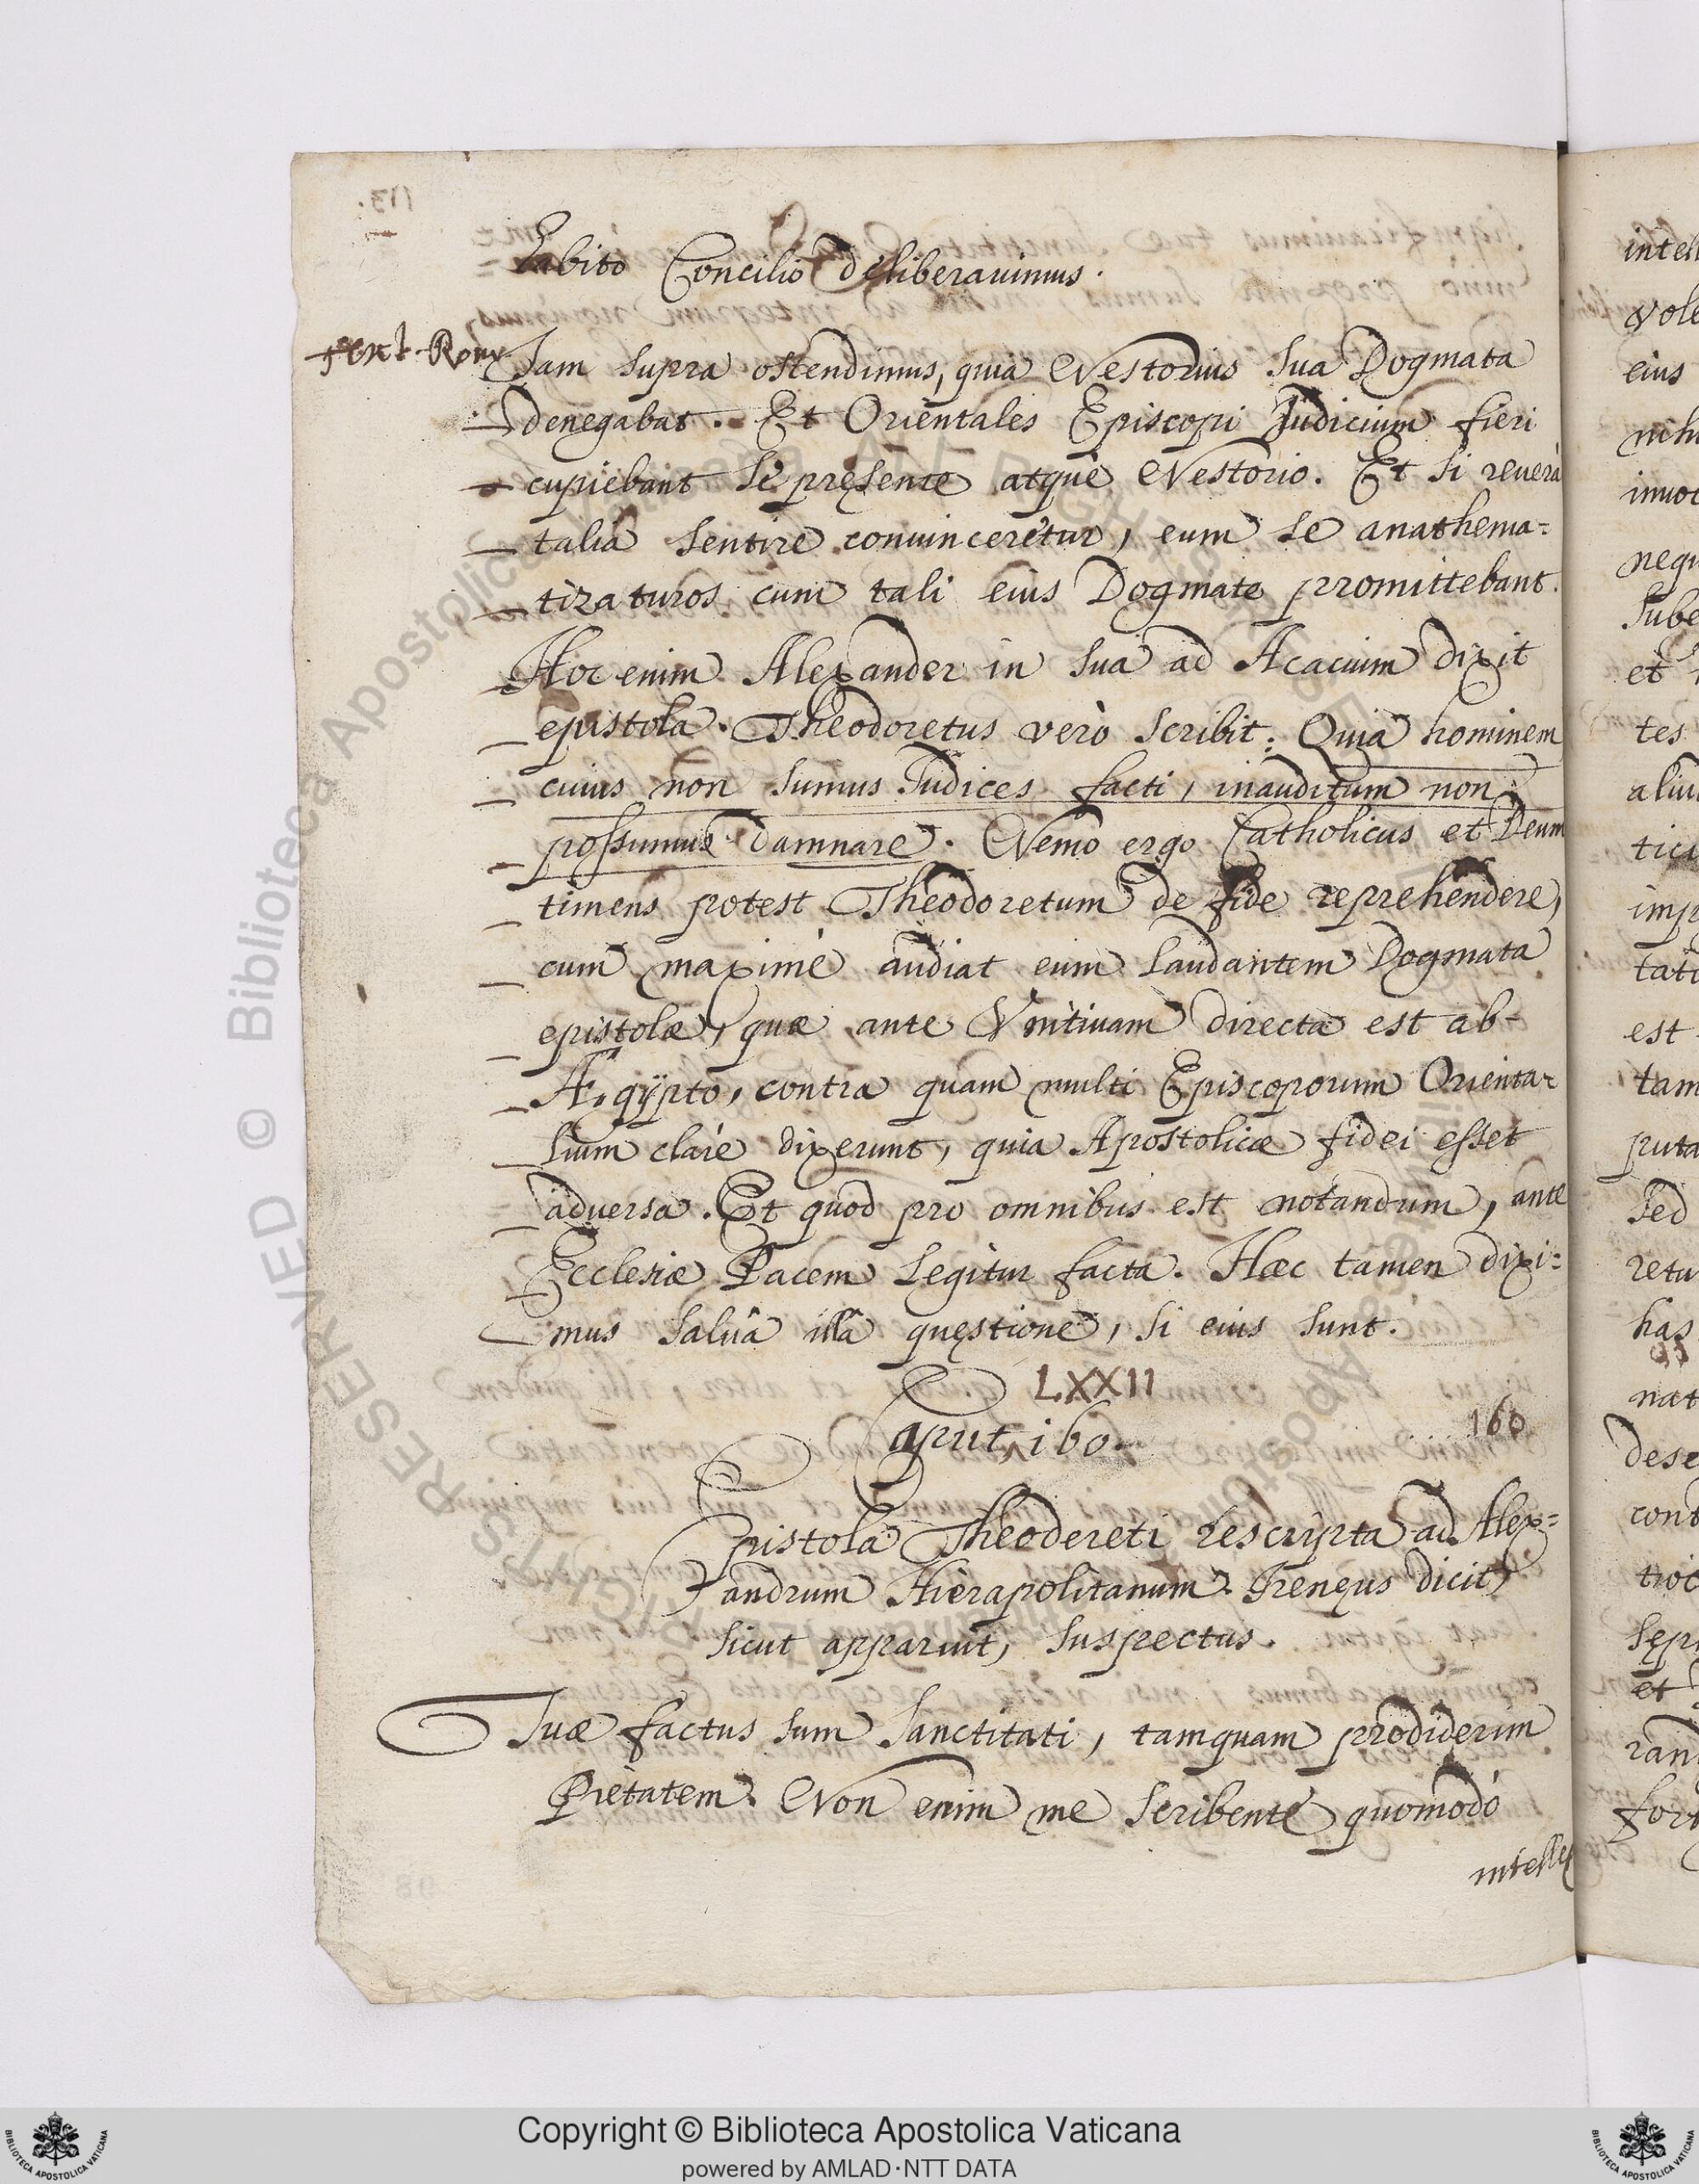 habito Concilio deliberauimus.
Iam supra ostendimus, quia Nestorius sua Dogmata
denegabat. Et Orientales Episcopi Judicium fieri
cupiebant se pręsente atque Nestorio. Et si reuerà
talia sentire conuinceretur, eum se anathema=
tizaturos cum tali eius Dogmate promittebant.
Hoc enim Alexander in sua ad Acacium dixit
epistola. Theodoretus verò scribit: Quia hominem
cuius non sumus Judices facti, inauditum non
possumus damnare. Nemo ergo Catholicus et Deum
timens potest Theodoretum de fide reprehendere,
cum maximè audiat eum laudantem Dogmata
epistolæ, quæ ante Vnitiuam directa est ab-
Ægÿpto, contra quam multi Episcoporum Orienta-
lium clarè dixerunt, quia Apostolicæ fidei esset
aduersa. Et quod pro omnibus est notandum, ante
Ecclesiæ Pacem legitur facta. Hæc tamen dixi=
mus saluâ illâ quęstione, si eius sunt.
LXXII
Caput 160.
160
Epistola Theodereti rescripta ad Alex=
andrum Hierapolitanum. Irenęus dicit,
sicut apparuit, suspectus.
Tuæ factus sum Sanctitati, tamquam prodiderim
Pietatem. Non enim me scribente quomodò
intellex
Copyright © Biblioteca Apostolica Vaticana
powered by AMLAD·NTT DATA